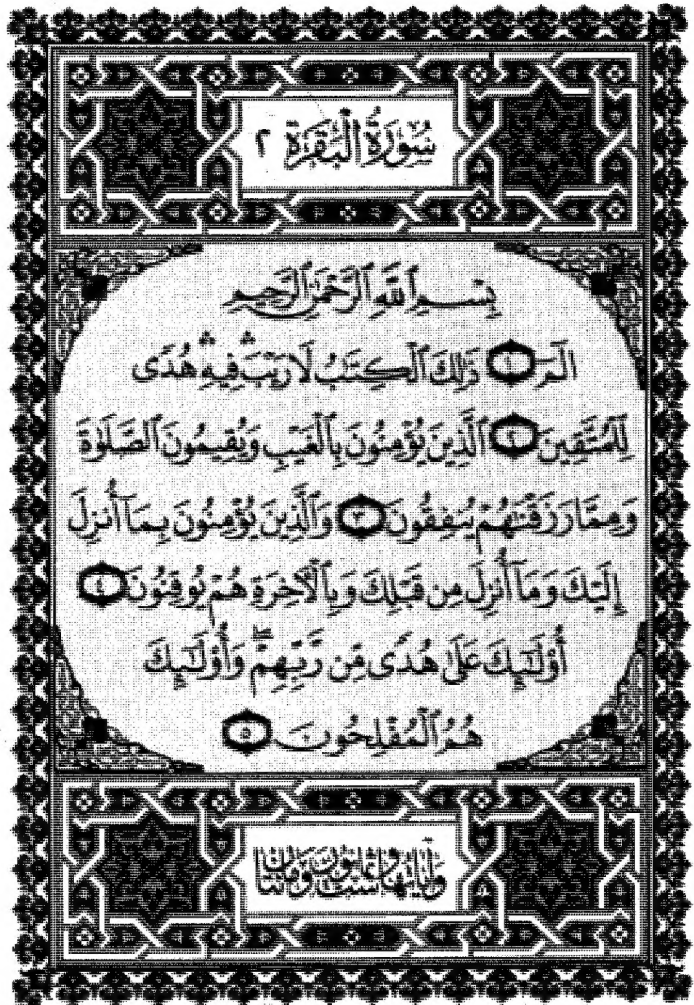 سُورَةُ ٱلْبَقَرَةِ ٢
بِسْمِ ٱللَّهِ ٱلرَّحْمَٰنِ ٱلرَّحِيمِ
الٓمٓ ١ ذَٰلِكَ ٱلْكِتَٰبُ لَا رَيْبَ ۛ فِيهِ ۛ هُدًى
لِّلْمُتَّقِينَ ٢ ٱلَّذِينَ يُؤْمِنُونَ بِٱلْغَيْبِ وَيُقِيمُونَ ٱلصَّلَوٰةَ
وَمِمَّا رَزَقْنَٰهُمْ يُنفِقُونَ ٣ وَٱلَّذِينَ يُؤْمِنُونَ بِمَآ أُنزِلَ
إِلَيْكَ وَمَآ أُنزِلَ مِن قَبْلِكَ وَبِٱلْءَاخِرَةِ هُمْ يُوقِنُونَ ٤
أُو۟لَٰٓئِكَ عَلَىٰ هُدًى مِّن رَّبِّهِمْ ۖ وَأُو۟لَٰٓئِكَ
هُمُ ٱلْمُفْلِحُونَ ٥
وآياتها ست وثمانون ومائتان